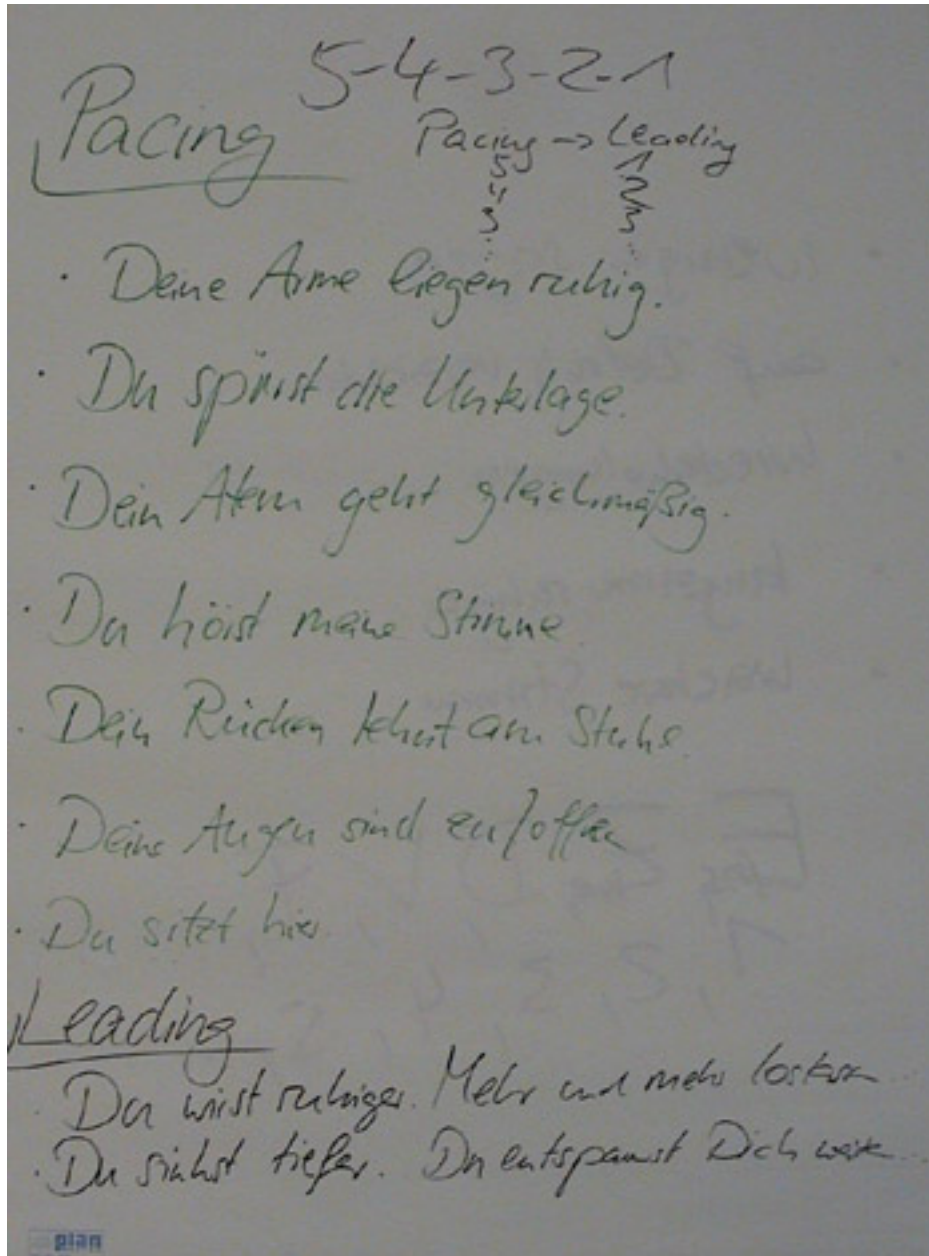 5-4-3-2-1
Pacing
Pacing -> Leading
5 1
4 2
3 3
· Deine Arme liegen ruhig.
· Du spürst die Unterlage.
· Dein Atem geht gleichmäßig.
· Du hörst meine Stimme
· Dein Rücken lehnt am Stuhl
· Deine Augen sind zu/offen
· Du sitzt hier.
Leading
· Du wirst ruhiger. Mehr und mehr
· Du sinkst tiefer. Du entspannst Dich
plan